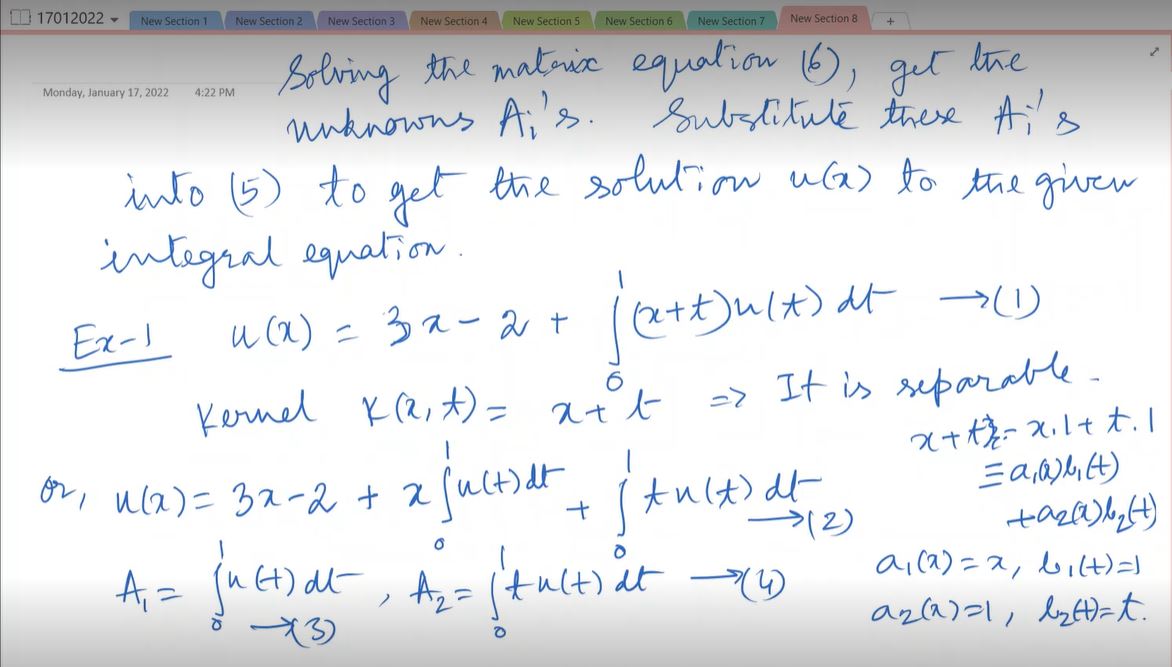 17012022
New Section 1 New Section 2 New Section 3 New Section 4 New Section 5 New Section 6 New Section 7 New Section 8 +
Monday, January 17, 2022 4:22 PM
Solving the matrix equation (6), get the
unknowns Aᵢ's. Substitute these Aᵢ's
into (5) to get the solution u(x) to the given
integral equation.
Ex-1 u(x) = 3x - 2 + ∫₀¹ (x+t)u(t) dt → (1)
Kernel K(x,t) = x+t => It is separable.
x+t = x.1 + t.1
≡ a₁(x)b₁(t)
+a₂(x)b₂(t)
or, u(x) = 3x-2 + x∫₀¹ u(t)dt + ∫₀¹ tu(t) dt → (2)
a₁(x) = x, b₁(t)=1
A₁ = ∫₀¹ u(t) dt → (3), A₂ = ∫₀¹ tu(t) dt → (4)
a₂(x)=1, b₂(t)=t.